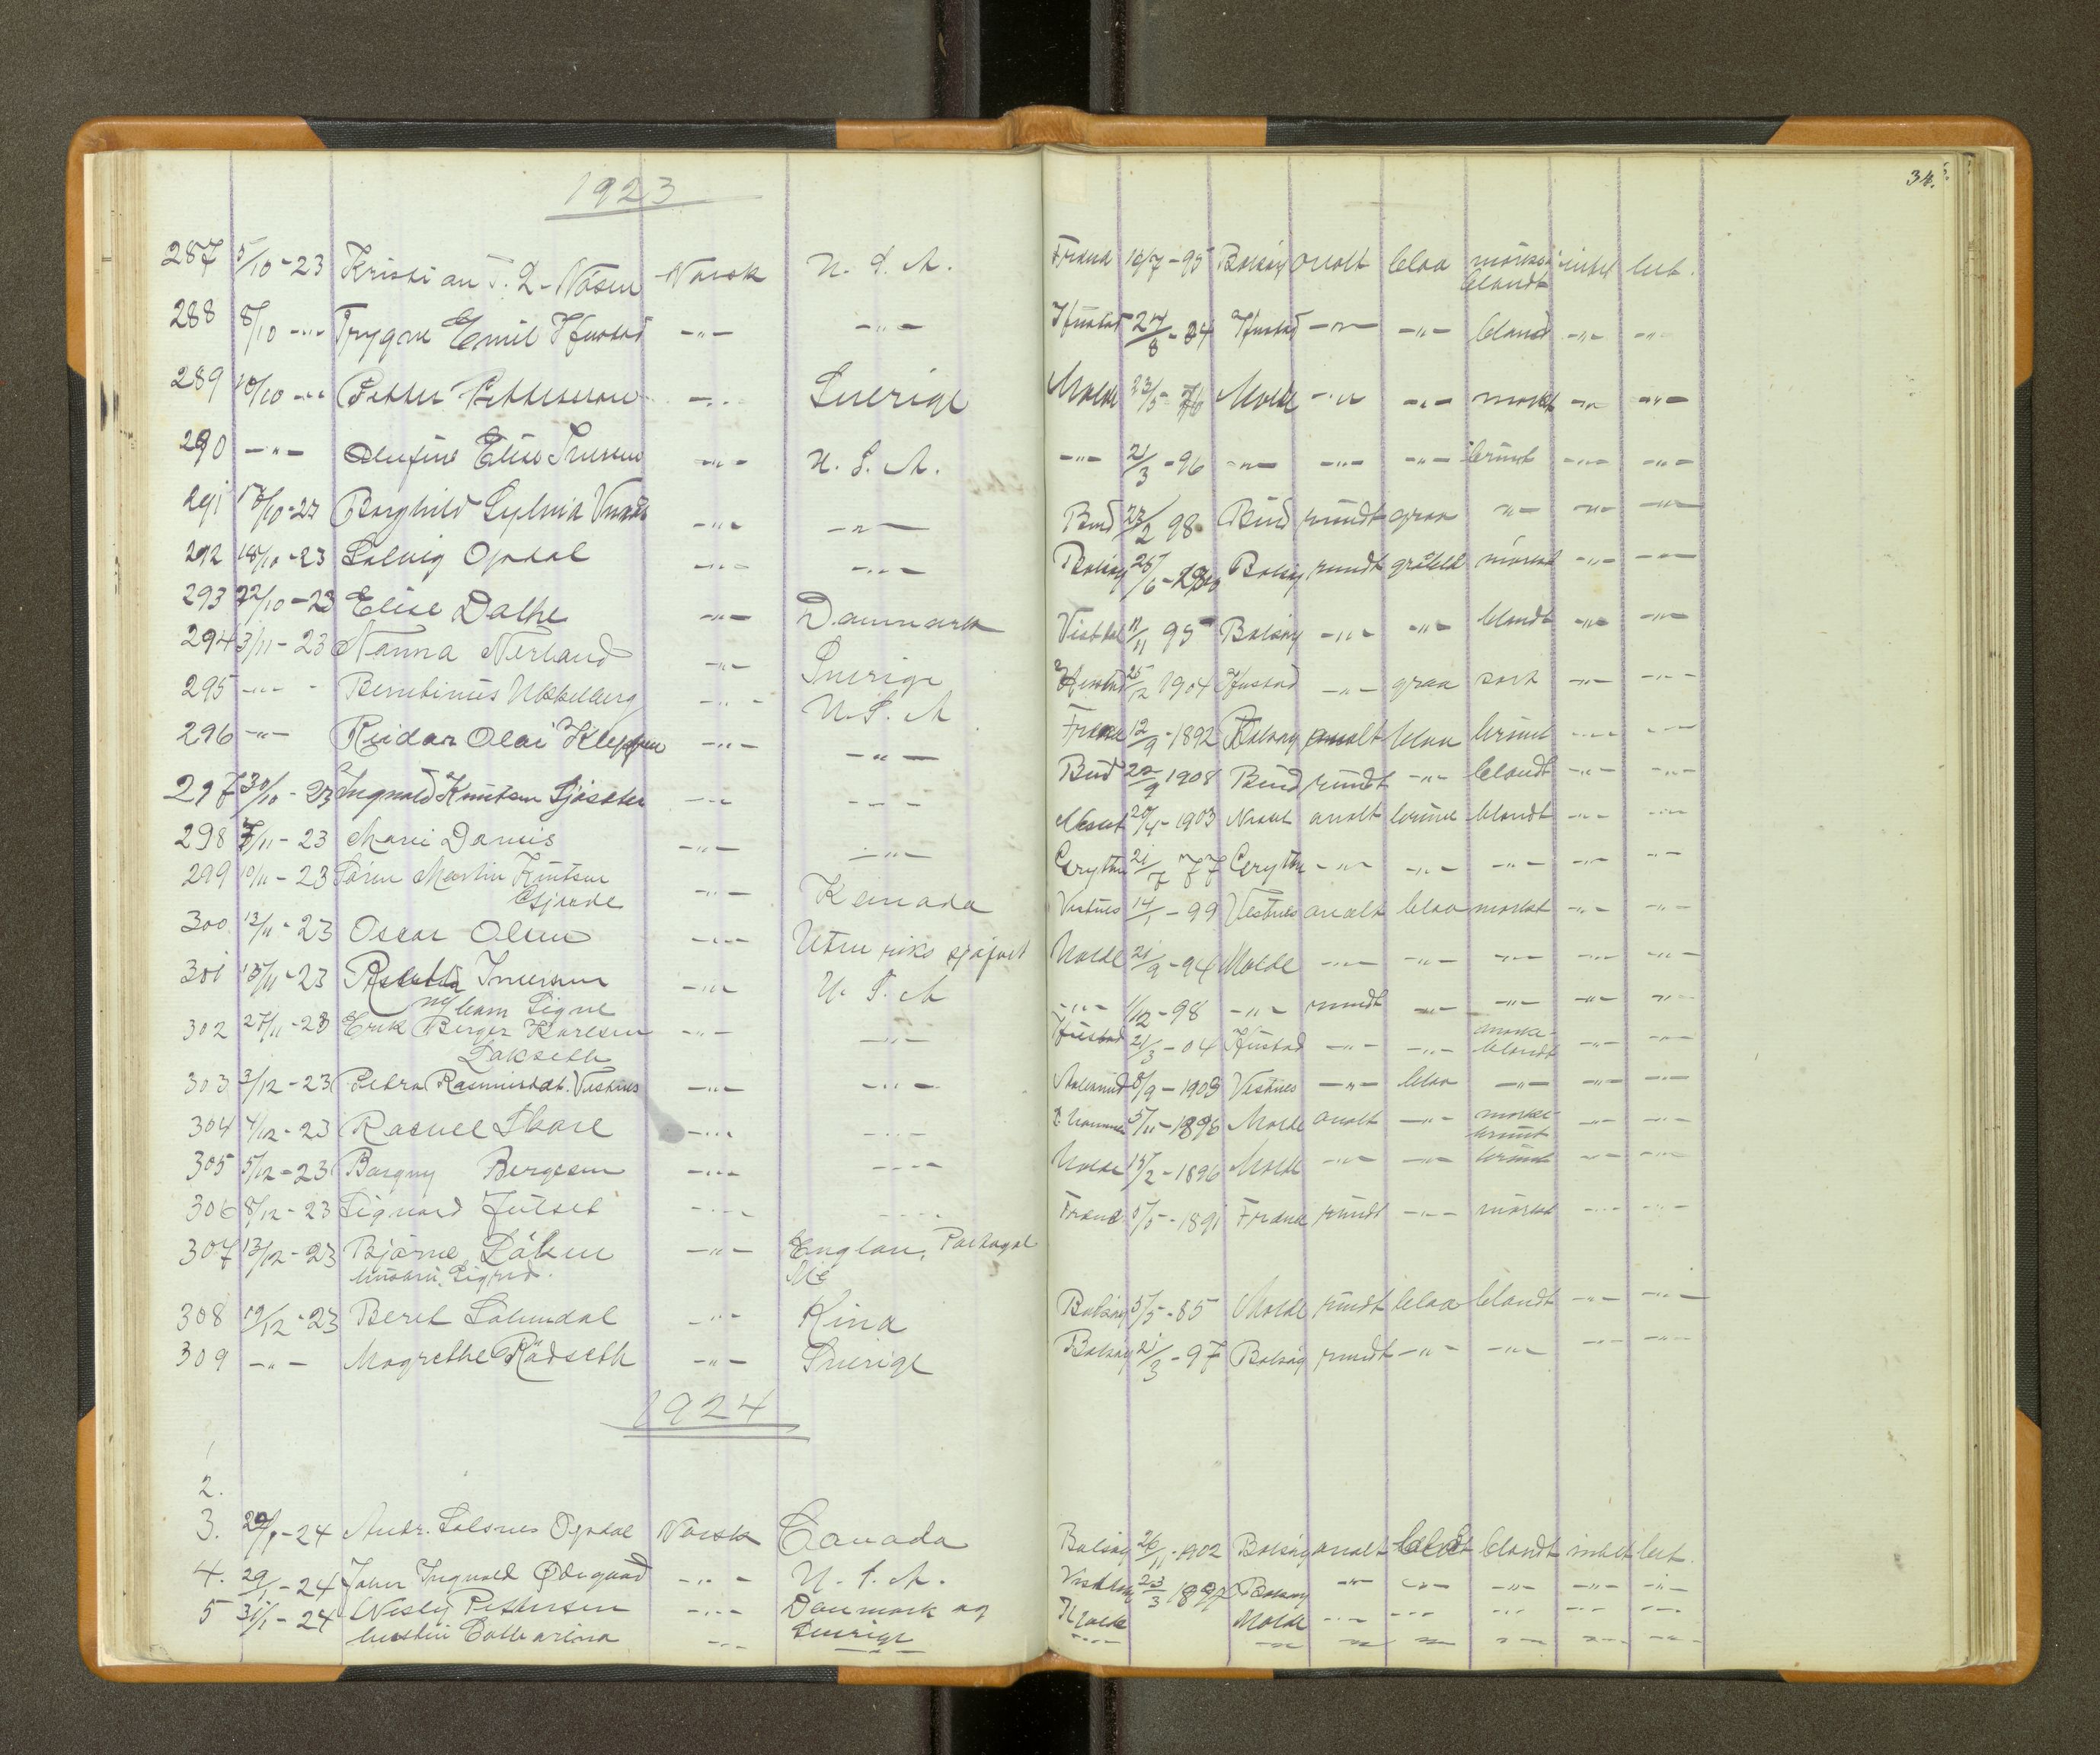 1923
34.
287 5/10-23 Kristian T. L. Nåsen Norsk U. S. A. Fræna 10/7-95 Bolsöy ovalt blaa mörkeblandt intet lut.
288 8/10 -"- Trygve Emil Hustad -"- -"- Hustad 24/8-04 Hustad -"- -"- bland -"- -"-
289 10/10 -"- Petter Pettersen -"- Sverige Molde 23/5 76 Molde -"- -"- mörkt -"- -"-
290 -"- Olufine Elise Iversen -"- U. S. A. -"- 21/3-96 -"- -"- -"- brunt -"- -"-
291 17/10-23 Borghild Sylvia -"- -"- Bud 27/2 98 Bud rundt graa -"- -"- -"-
292 18/10-23 Solveig Opdal -"- -"- Bolsöy 25/6- Bolsöy rundt mörkt -"- -"-
293 22/10-23 Elise Dalhe -"- Danmark 11/11 95 Bolsöy -"- -"- blandt -"- -"-
294 3/11-23 Nanna Nerland -"- Sverige Hustad 25/12 1904 Hustad -"- graa sort -"- -"-
295 -"- -"- U. S. A Fræna 12/9-1892 Bolsöy ovalt blaa brunt -"- -"-
296 -"- Reidar Olai Kleppen -"- -"- Bud 22/9 1908 Bud rundt -"- blandt -"- -"-
297 30/10-23 Ingvald Knutsen -"- -"- 20/4-1903 ovalt brune blandt -"- -"-
298 7/11-23 Mari Davis -"- -"- Grytten 21/7 77 Grytten -"- -"- -"- -"- -"-
299 10/11-23 Sören Martin Knutsen
Gjerde -"- Kanada Vestnes 14/1-99 Vestnes ovalt blaa mörkt -"- -"-
300 12/11-23 Oscar Olsen -"- Uten riks sjöfart Molde 21/9-94 Molde -"- -"- -"- -"- -"-
301 13/11-23 Iversen
m/barn Signe -"- U. S. A -"- 1/12-98 -"- rundt -"- -"- -"- -"-
302 27/11-23 Erik Birger Karlsen
Lakseth -"- -"- Hustad 21/3-04 Hustad -"- -"- mörkeblandt -"- -"-
303 3/12-23 Petra Rasmusdt. Vestnes -"- -"- Aalesund 8/9-1903 Vestnes -"- blaa -"- -"- -"-
304 4/12-23 Skare -"- -"- 5/11-1896 Molde ovalt -"- mörkebrunt -"- -"-
305 5/12-23 Borgny Bergesen -"- -"- Molde 15/2-1896 Molde -"- -"- brunt -"- -"-
306 8/12-23 Sigurd Julset -"- -"- Fræna 5/5-1891 Fræna rundt -"- mörkt -"- -"-
307 13/12-23 Bjarne Döken -"- Englan, Portugal
hustru Sigrid.
308 19/12-23 Beret Solemdal -"- Kina Bolsöy 5/5-85 Molde rundt blaa blandt -"- -"-
309 -"- Magrethe Rödseth -"- Sverige Bolsöy 21/3-97 Bolsöy rundt -"- -"- -"- -"-
1924
1
2.
3. 29/1-24 Andr. Solsnes Opdal Norsk Canada Bolsöy 26/11-1902 Bolsöy ovalt blandt intet lut.
4. 29/1-24 Johan Ingvald Ødegaard -"- U. S. A. 23/3 1897 Bolsöy -"- -"- -"- -"- -"-
5 31/1-24 Pettersen -"- Danmark og Molde Molde -"- -"- -"- -"- -"-
hustru Catharina -"- Sverige -"- -"- -"- -"- -"- -"- -"-